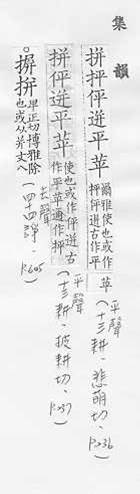 集韻
拼抨伻迸平苹 爾雅使也或作
抨伻迸古作平苹 平聲(十三耕·悲萌切·P.236
拼伻迸平苹 使也或作伻迸古
作平苹通作抨 平聲(十三耕·披耕切·P.237)
○摒拼 卑正切博雅除
也或从并文八 去聲(四十四諍· P.605